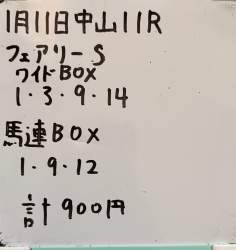 1月11日中山11R
フェアリーS
ワイドBOX
1・3・9・14
馬連BOX
1・9・12
計900円